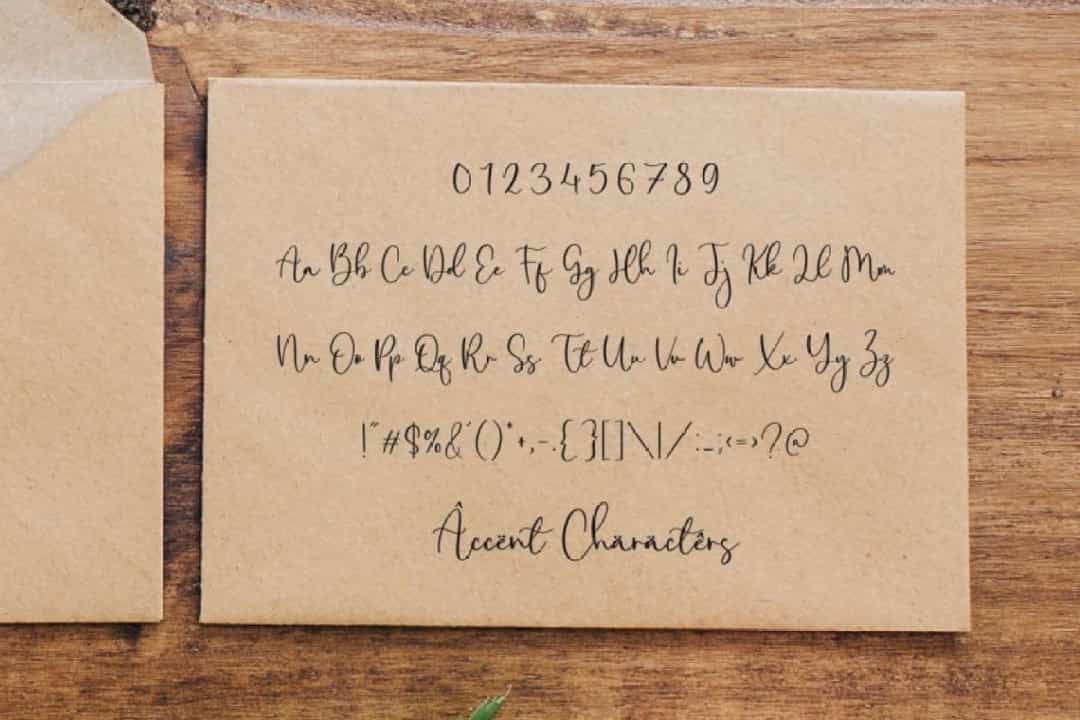 0123456789
Aa Bb Cc Dd Ee Ff Gg Hh Ii Jj Kk Ll Mm
Nn Oo Pp Qq Rr Ss Tt Uu Vv Ww Xx Yy Zz
!"#$%&'()*+,-.{}[]\|/:_;<=>?@
Âccënt Chäräctêrs